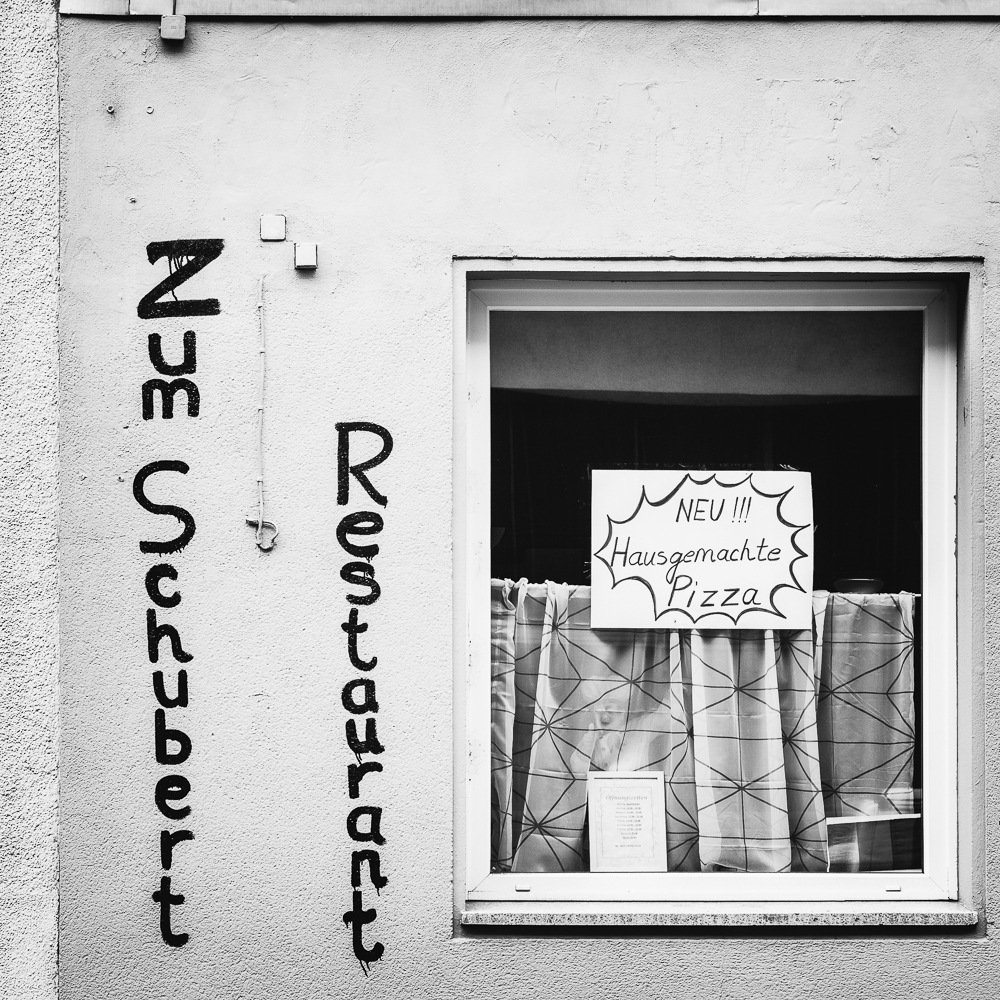 Zum Schubert
Restaurant
NEU !!!
Hausgemachte
Pizza
Öffnungszeiten